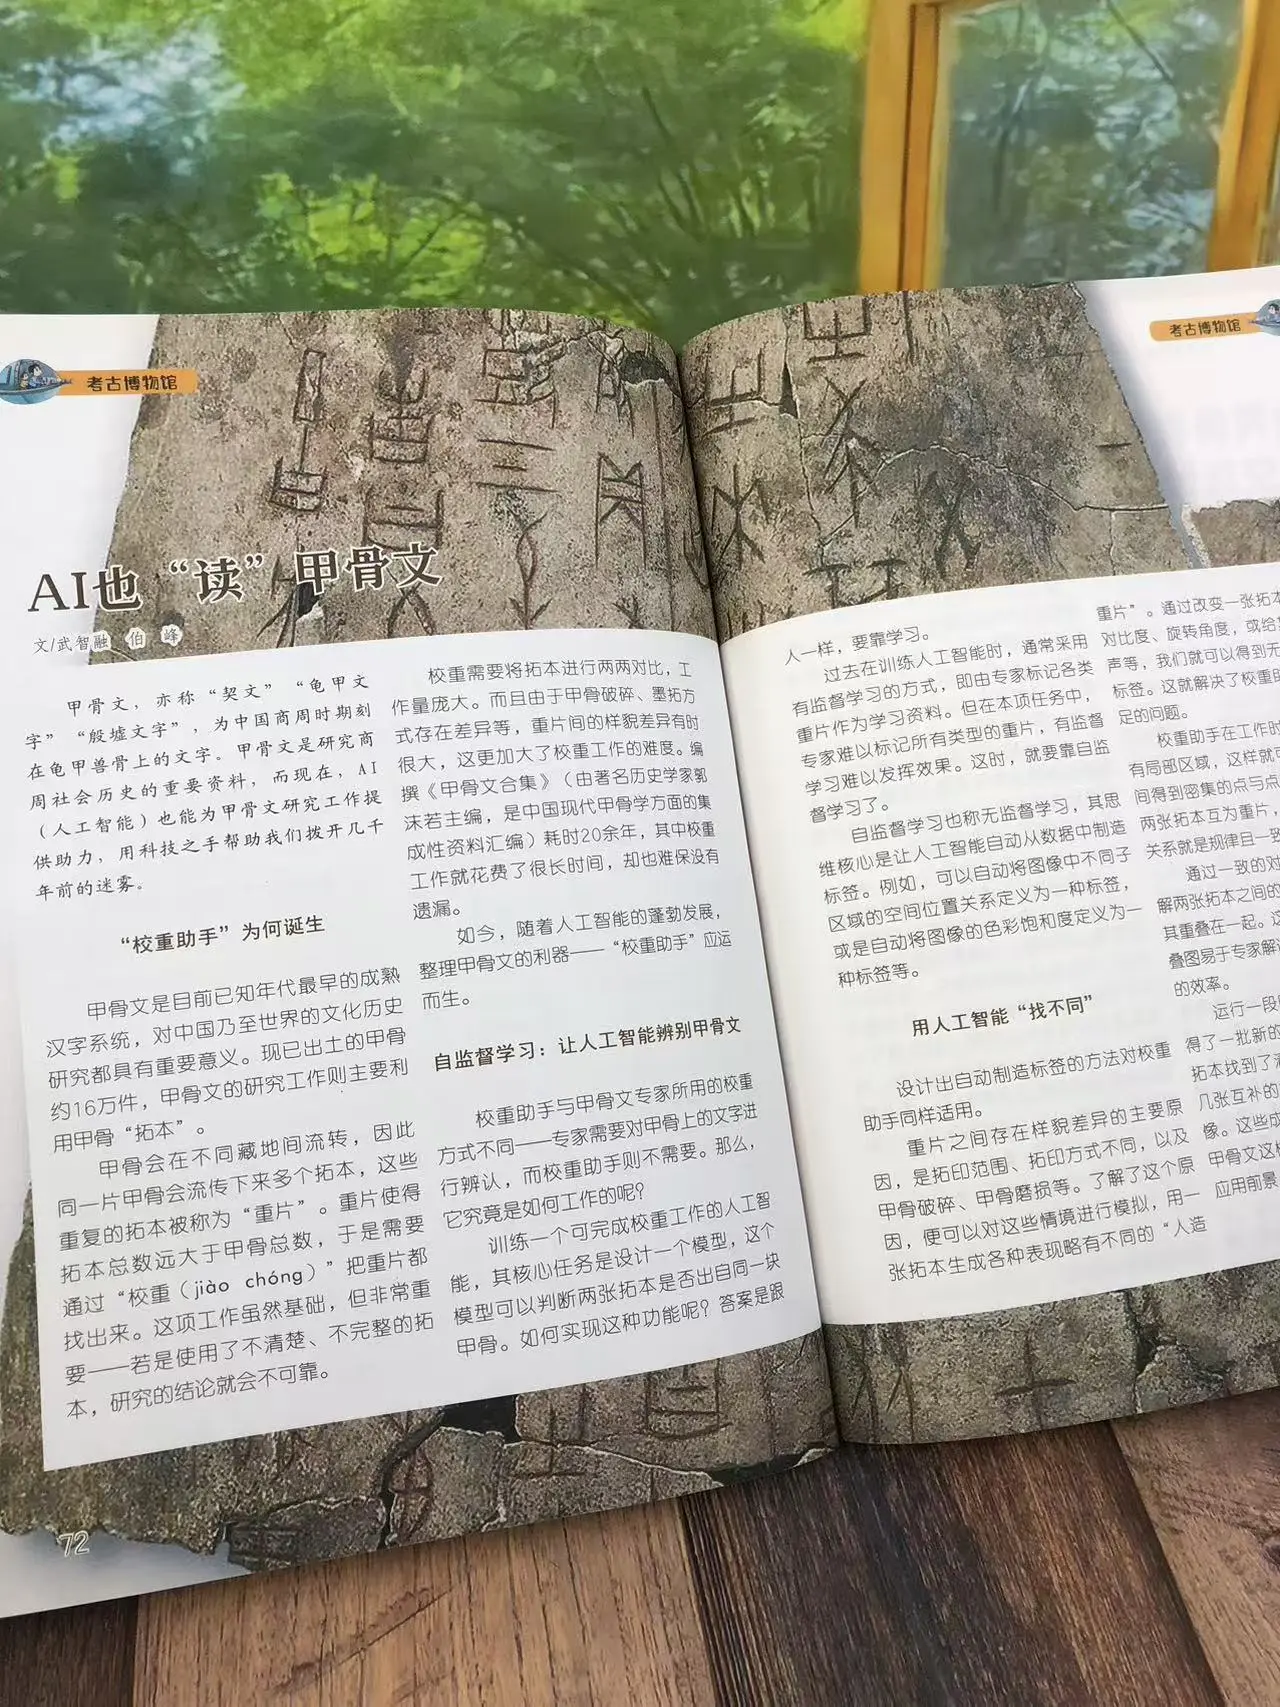 考古博物馆
AI也“读”甲骨文
文/武智融 伯峰
甲骨文，亦称“契文”“龟甲文
字”“殷墟文字”，为中国商周时期刻
在龟甲兽骨上的文字。甲骨文是研究商
周社会历史的重要资料，而现在，AI
（人工智能）也能为甲骨文研究工作提
供助力，用科技之手帮助我们拨开几千
年前的迷雾。
“校重助手”为何诞生
甲骨文是目前已知年代最早的成熟
汉字系统，对中国乃至世界的文化历史
研究都具有重要意义。现已出土的甲骨
约16万件，甲骨文的研究工作则主要利
用甲骨“拓本”。
甲骨会在不同藏地间流转，因此
同一片甲骨会流传下来多个拓本，这些
重复的拓本被称为“重片”。重片使得
拓本总数远大于甲骨总数，于是需要
通过“校重（jiào chóng）”把重片都
找出来。这项工作虽然基础，但非常重
要——若是使用了不清楚、不完整的拓
本，研究的结论就会不可靠。
72
校重需要将拓本进行两两对比，工
作量庞大。而且由于甲骨破碎、墨拓方
式存在差异等，重片间的样貌差异有时
很大，这更加大了校重工作的难度。编
撰《甲骨文合集》（由著名历史学家郭
沫若主编，是中国现代甲骨学方面的集
成性资料汇编）耗时20余年，其中校重
工作就花费了很长时间，却也难保没有
遗漏。
如今，随着人工智能的蓬勃发展，
整理甲骨文的利器——“校重助手”应运
而生。
自监督学习：让人工智能辨别甲骨文
校重助手与甲骨文专家所用的校重
方式不同——专家需要对甲骨上的文字进
行辨认，而校重助手则不需要。那么，
它究竟是如何工作的呢？
训练一个可完成校重工作的人工智
能，其核心任务是设计一个模型，这个
模型可以判断两张拓本是否出自同一块
甲骨。如何实现这种功能呢？答案是跟
考古博物馆
人一样，要靠学习。
过去在训练人工智能时，通常采用
有监督学习的方式，即由专家标记各类
重片作为学习资料。但在本项任务中，
专家难以标记所有类型的重片，有监督
学习难以发挥效果。这时，就要靠自监
督学习了。
自监督学习也称无监督学习，其思
维核心是让人工智能自动从数据中制造
标签。例如，可以自动将图像中不同子
区域的空间位置关系定义为一种标签，
或是自动将图像的色彩饱和度定义为一
种标签等。
用人工智能“找不同”
设计出自动制造标签的方法对校重
助手同样适用。
重片之间存在样貌差异的主要原
因，是拓印范围、拓印方式不同，以及
甲骨破碎、甲骨磨损等。了解了这个原
因，便可以对这些情境进行模拟，用一
张拓本生成各种表现略有不同的“人造
重片”。通过改变一张拓本
对比度、旋转角度，或给
声等，我们就可以得到无
标签。这就解决了校重的
足的问题。
校重助手在工作时
有局部区域，这样就可
间得到密集的点与点
两张拓本互为重片，
关系就是规律且一致
通过一致的对
解两张拓本之间的
其重叠在一起。这
叠图易于专家解读
的效率。
运行一段时
得了一批新的
拓本找到了满
几张互补的
像。这些成
甲骨文这样
应用前景